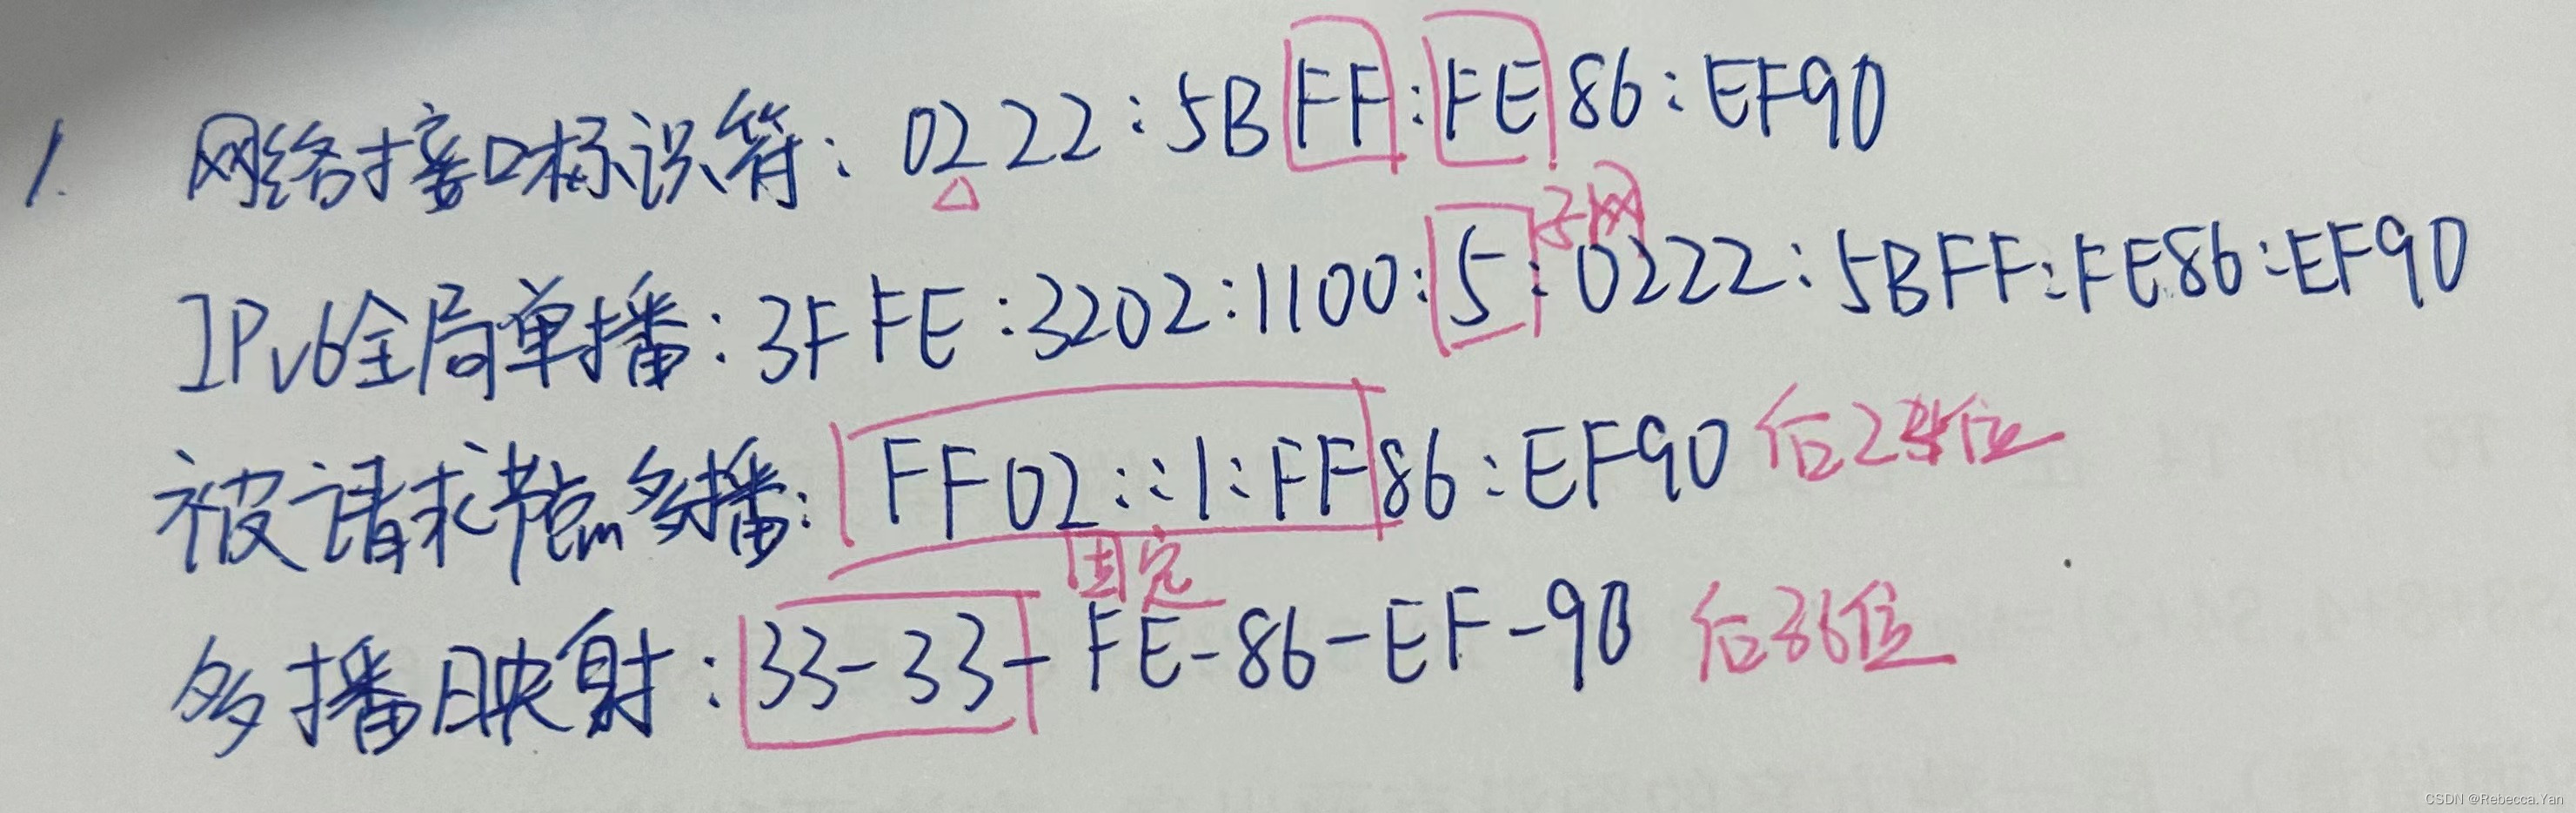 1. 网络接口标识符: 0222:5BFF:FE86:EF90
子网
IPv6全局单播: 3FFE:3202:1100:5:0222:5BFF:FE86:EF90
被请求节点多播: FF02::1:FF86:EF90 后24位
固定
多播映射: 33-33-FE-86-EF-90 后36位
CSDN @Rebecca.Yan